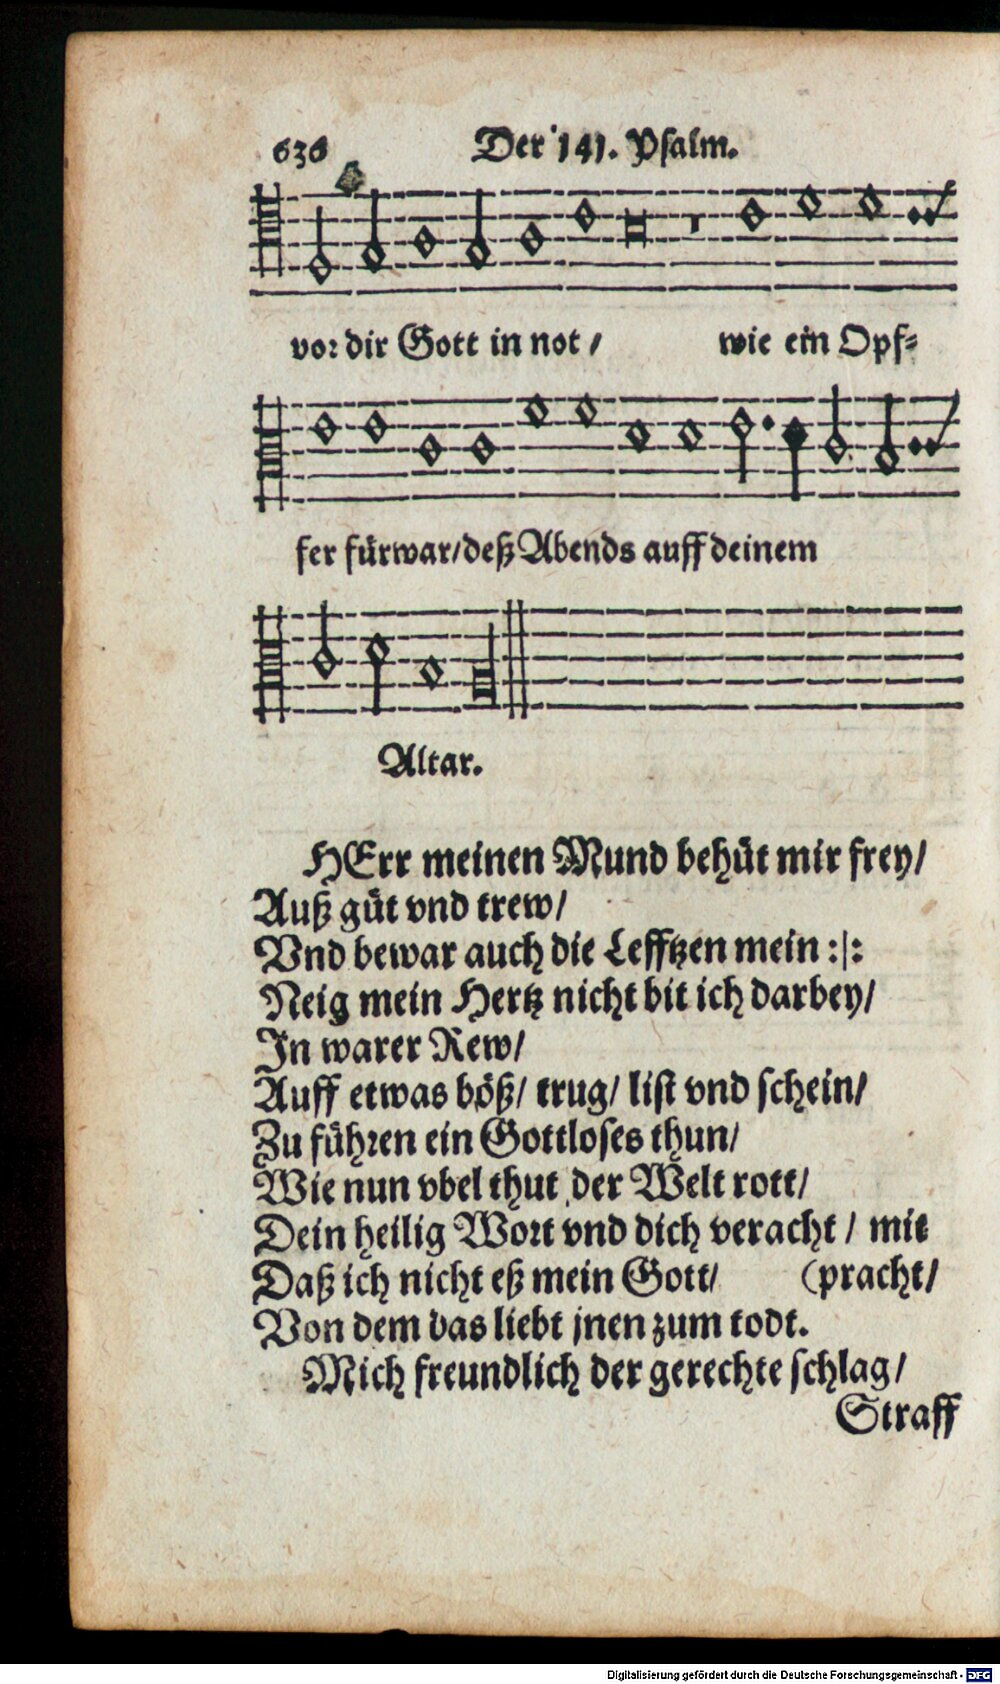 636 Der 141. Psalm.
vor dir Gott in not / wie ein Opf=
fer fürwar/deß Abends auff deinem
Altar.
HErr meinen Mund behüt mir frey/
Auß güt vnd trew/
Vnd bewar auch die Lefftzen mein :|:
Neig mein Hertz nicht bit ich darbey/
In warer Rew/
Auff etwas böß/ trug/ list vnd schein/
Zu führen ein Gottloses thun/
Wie nun vbel thut der Welt rott/
Dein heilig Wort vnd dich veracht / mit
Daß ich nicht eß mein Gott/ (pracht/
Von dem das liebt jnen zum todt.
Mich freundlich der gerechte schlag/
Straff
Digitalisierung gefördert durch die Deutsche Forschungsgemeinschaft - DFG